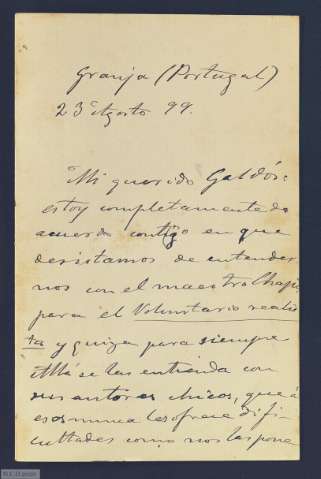 Granja (Portugal)
23 Agosto 99.
Mi querido Galdós:
estoy completamente de
acuerdo contigo en que
desistamos de entender
nos con el maestro Chapí
para el Voluntario realis
ta y quiza para siempre
Allá se las entienda con
sus autores chicos, que á
esos nunca les ofrece difi-
cultades como nos las pone